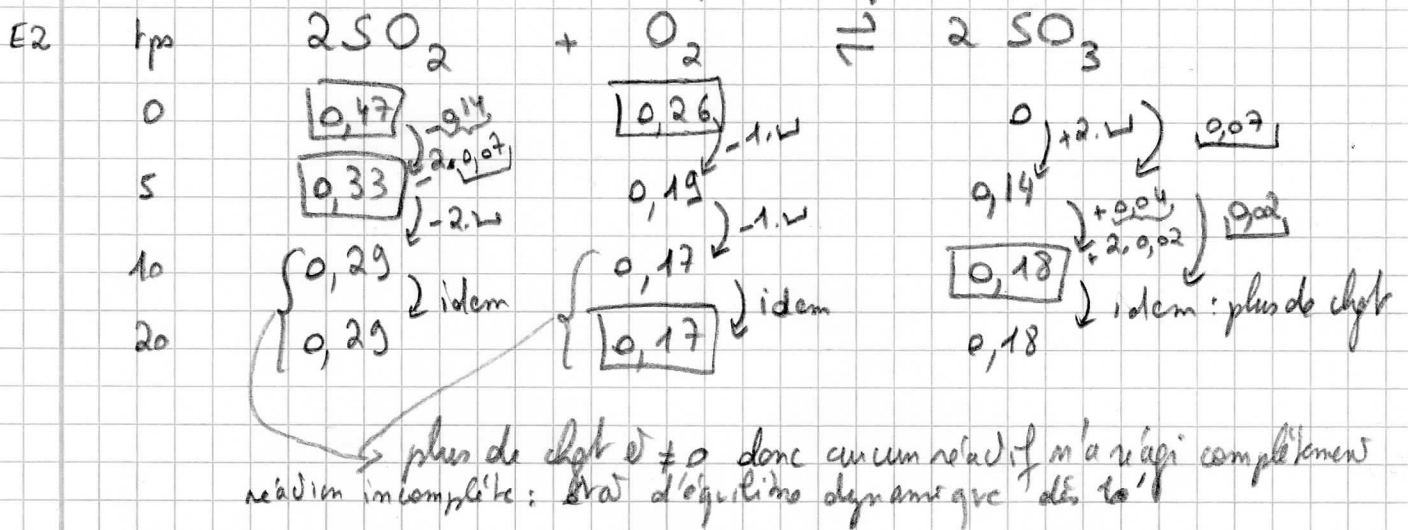 E2 tps 2SO₂ + O₂ ⇌ 2 SO₃
0 0,47 0,26 0
-0,14 -2.0,07 -1.⊔ +2.⊔ 0,07
5 0,33 0,19 0,14
-2.⊔ -1.⊔ +0,04 +2.0,02 0,02
10 0,29 0,17 0,18
idem idem idem : plus de chgt
20 0,29 0,17 0,18
plus de chgt et ≠ 0 donc aucun réactif n'a réagi complètement
réaction incomplète : état d'équilibre dynamique dès 10'